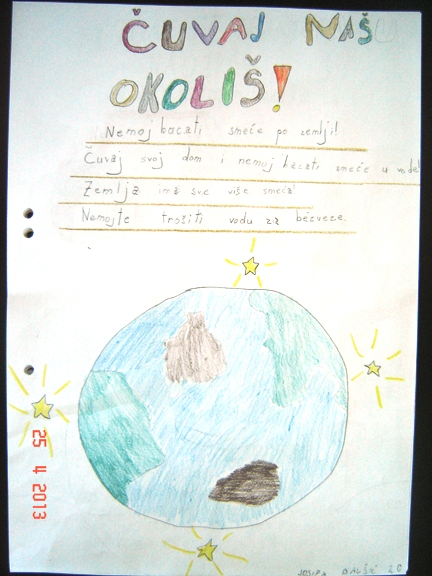 ČUVAJ NAŠ
OKOLIŠ!
Nemoj bacati smeće po zemlji!
Čuvaj svoj dom i nemoj bacati smeće u vode!
Zemlja ima sve više smeća!
Nemojte trošiti vodu za bezveze.
25 4 2013
JOSIPA